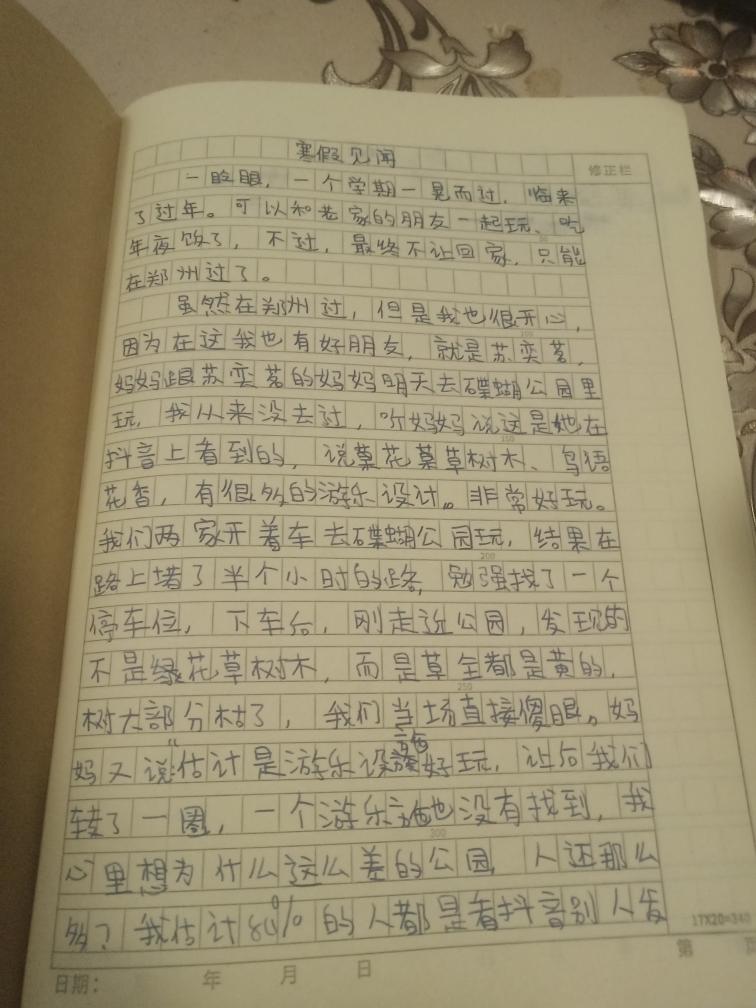 寒假见闻
修正栏
一眨眼，一个学期一晃而过，临来
了过年。可以和老家的朋友一起玩、吃
年夜饭了，不过，最终不让回家，只能
在郑州过了。
虽然在郑州过，但是我也很开心，
因为在这我也有好朋友，就是苏奕茗，
妈妈跟苏奕茗的妈妈明天去碟蝴公园里
玩，我从来没去过，听妈妈说这是她在
150
抖音上看到的，说菓花菓草树木、鸟语
花香，有很多的游乐设计。非常好玩。
我们两家开着车去碟蝴公园玩，结果在
200
路上堵了半个小时的路，勉强找了一个
停车位，下车后，刚走近公园，发现的
不是绿花草树木，而是草全都是黄的，
250
树大部分枯了，我们当场直接傻眼。妈
妈又说估计是游乐设施好玩，让后我们
转了一圈，一个游乐施也没有找到，我
300
心里想为什么这么差的公园，人还那么
多？我估计80%的人都是看抖音别人发
17X20=340
日期： 年 月 日
第 页